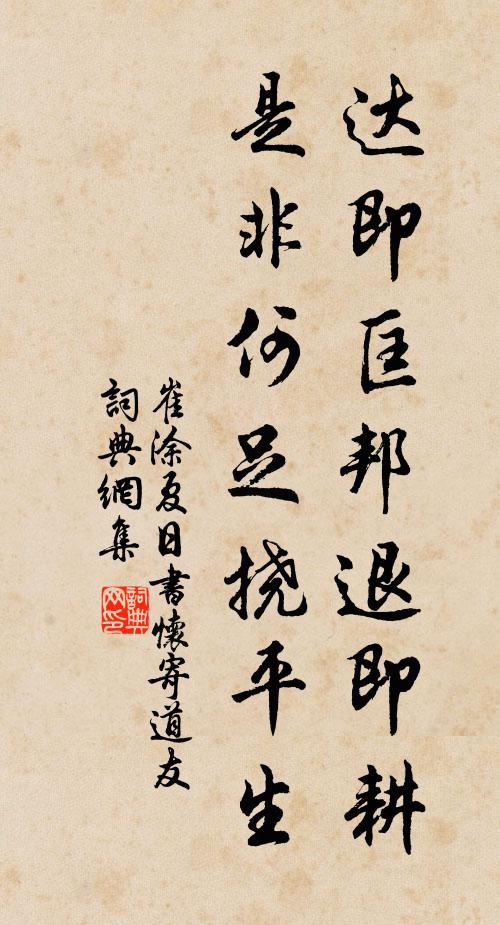 达即匡邦退即耕
是非何足挠平生
崔涂夏日書懷寄道友
詞典網集
詞典网印